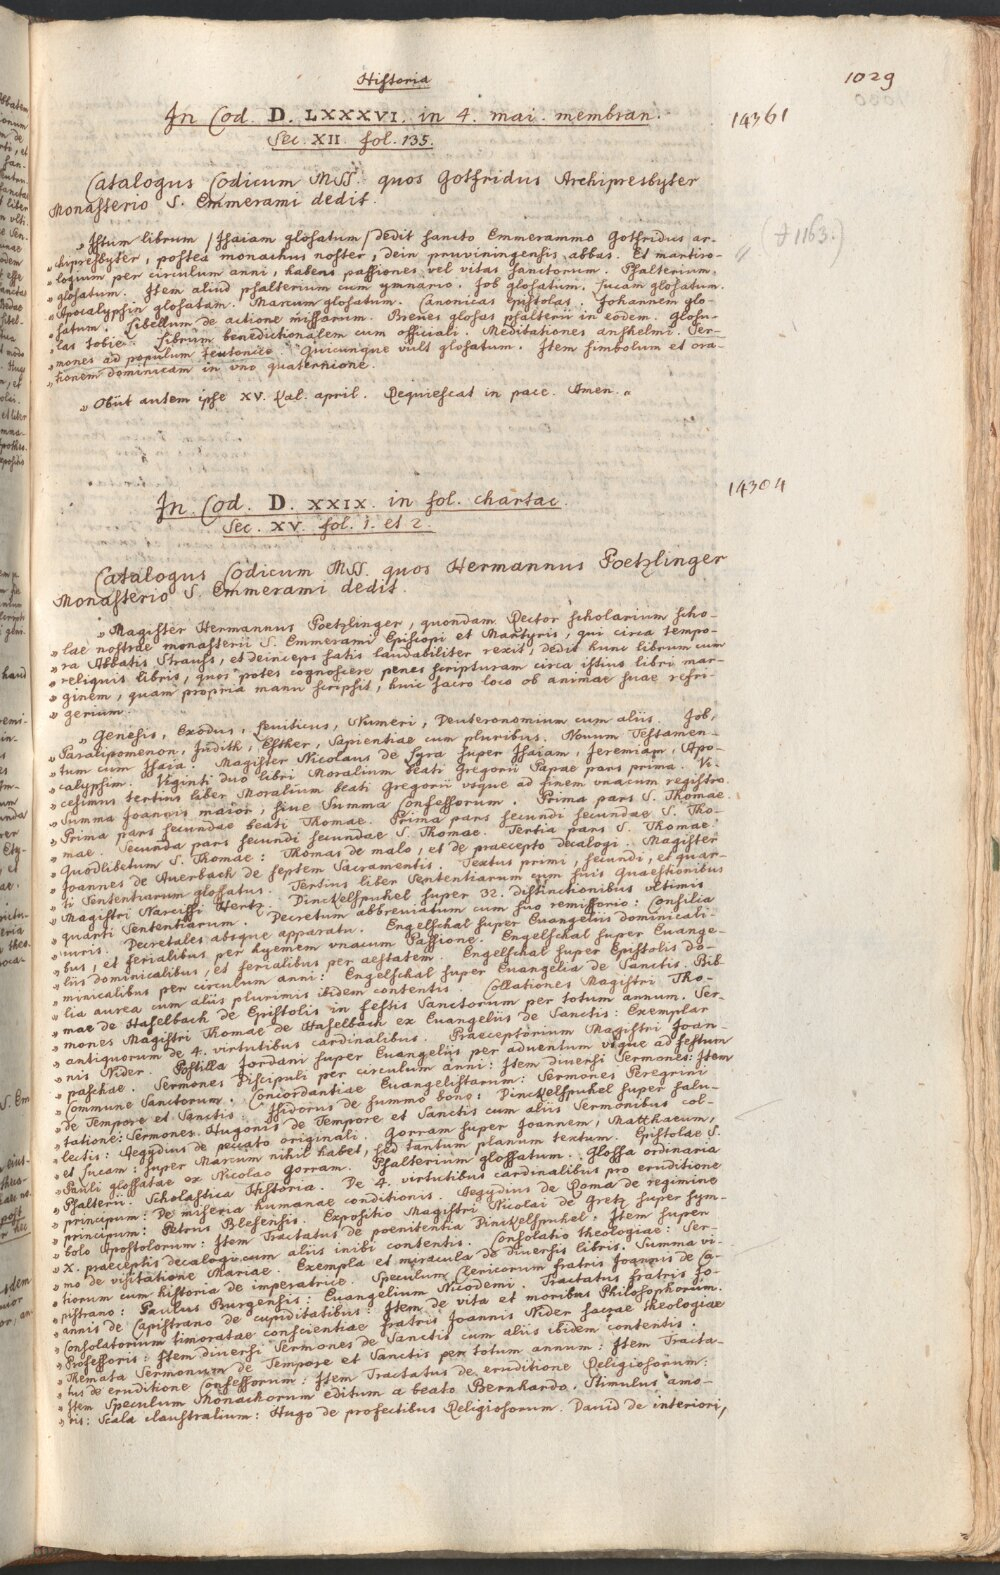 Historia
1029
In Cod. D. LXXXVI. in 4. mai. membran.
14361
Sec. XII fol. 135.
Catalogus Codicum MSS. quos Gotfridus Archipresbyter
Monasterio S. Emmerami dedit.
„ Istum librum /Isaiam glosatum/ dedit sancto Emmerammo Gotfridus ar-
(† 1163.)
„ chipresbyter, postea monachus noster, dein pruviningensis abbas. Et martiro-
„ logium per circulum anni, habens passiones vel vitas sanctorum. Psalterium
„ glosatum. Item aliud psalterium cum ymnario. Job glosatum. Lucam glosatum.
„ Apocalypsin glosatam. Marcum glosatum. Canonicas epistolas. Johannem glo-
„ satum. Libellum de actione missarum. Breues glosas psalterii in eodem. Glosu-
„ las tobie. Librum benedictionalem cum officiali. Meditationes anshelmi. Ser-
„ mones ad populum teutonice. Quicunque vult glosatum. Item simbolum et ora-
„ tionem dominicam in vno quaternione.
„ Obiit autem ipse XV. Kal. april. Requiescat in pace. Amen. „
In Cod. D. XXIX. in fol. chartac.
14304
Sec. XV. fol. 1. et 2.
Catalogus Codicum MSS. quos Hermannus Poetzlinger
Monasterio S. Emmerami dedit.
„ Magister Hermannus Poetzlinger, quondam Rector scholarium scho-
„ lae nostrae monasterii S. Emmerami Episcopi et Martyris, qui circa tempo-
„ ra Abbatis Strauss, et deinceps satis laudabiliter rexit, dedit hunc librum cum
„ reliquis libris, quos potes cognoscere penes scripturam circa istius libri mar-
„ ginem, quam propria manu scripsit, huic sacro loco ob animae suae refri-
„ gerium.
„ Genesis, Exodus, Leuiticus, Numeri, Deuteronomium cum aliis. Job,
„ Paralipomenon, Judith, Esther, Sapientiae cum pluribus. Novum Testamen-
„ tum cum Isaia. Magister Nicolaus de Lyra super Isaiam, Jeremiam, Apo-
„ calypsim. Viginti duo libri Moralium beati Gregorii Papae pars prima. Vi-
„ cesimus tertius liber Moralium beati Gregorii vsque ad finem vnacum registro.
„ Summa Joannis maior, siue Summa Confessorum. Prima pars S. Thomae.
„ Prima pars secundae beati Thomae. Prima pars secundi secundae S. Tho-
„ mae. Secunda pars secundi secundae S. Thomae. Tertia pars S. Thomae.
„ Quodlibetum S. Thomae: Thomas de malo, et de praecepto decalogi. Magister
„ Joannes de Auerbach de septem Sacramentis. Textus primi, secundi, et quar-
„ ti Sententiarum glossatus. Tertius liber Sententiarum cum suis Quaestionibus
„ Magistri Narcissi Hertz. Dinckelspuhel super 32. distinctionibus vltimis
„ quarti Sententiarum. Decretum abbreviatum cum suo remissorio: Consilia
„ iuris. Decretales absque apparatu. Engelschal super Euangeliis dominicali-
„ bus, et ferialibus per hyemem vnacum Passione. Engelschal super Euange-
„ liis dominicalibus, et ferialibus per aestatem. Engelschal super Epistolis do-
„ minicalibus per circulum anni: Engelschal super Euangelia de Sanctis. Bib-
„ lia aurea cum aliis plurimis ibidem contentis. Collationes Magistri Tho-
„ mae de Haselbach de Epistolis in festis Sanctorum per totum annum. Ser-
„ mones Magistri Thomae de Haselbach ex Euangeliis de Sanctis: Exemplar
„ antiquorum de 4. virtutibus cardinalibus. Praeceptorium Magistri Joan-
„ nis Nider. Postilla Jordani super Euangeliis per aduentum vsque ad festum
„ paschae. Sermones Discipuli per circulum anni: Item diuersi Sermones: Item
„ Commune Sanctorum. Concordantiae Euangelistarum: Sermones Peregrini
„ de Tempore et Sanctis. Isidorus de summo bono: Dinckelspuhel super salu-
„ tatione: Sermones Hugonis de Tempore et Sanctis cum aliis Sermonibus col-
„ lectis: Aegydius de peccato originali. Gorram super Joannem, Matthaeum,
„ et Lucam: super Marcum nihil habet, sed tantum planum textum. Epistolae S.
„ Pauli glossatae ex Nicolao Gorram. Psalterium glossatum. Glossa ordinaria
„ Psalterii. Scholastica Historia. De 4. virtutibus cardinalibus pro eruditione
„ principum: De miseria humanae conditionis. Aegydius de Roma de regimine
„ principum: Petrus Blesensis. Expositio Magistri Nicolai de Gretz super sym-
„ bolo Apostolorum: Item Tractatus de poenitentia Dinckelspuhel. Item super
„ X. praeceptis decalogi cum aliis inibi contentis. Consolatio theologiae: Ser-
„ mo de visitatione Mariae. Exempla et miracula de diuersis libris. Summa vi-
„ tiorum cum historia de imperatrice. Speculum Clericorum fratris Joannis de Ca-
„ pistrano: Paulus Burgensis: Euangelium Nicodemi. Tractatus fratris Jo-
„ annis de Capistrano de cupiditatibus: Item de vita et moribus Philosophorum.
„ Consolatorium timoratae conscientiae fratris Joannis Nider sacrae theologiae
„ Professoris: Item diuersi Sermones de Sanctis cum aliis ibidem contentis.
„ Themata Sermonum de Tempore et Sanctis per totum annum: Item Tracta-
„ tus de eruditione Confessorum: Item Tractatus de eruditione Religiosorum:
„ Item Speculum Monachorum editum a beato Bernhardo. Stimulus amo-
„ ris: Scala claustralium: Hugo de profectibus Religiosorum. Dauid de interiori,